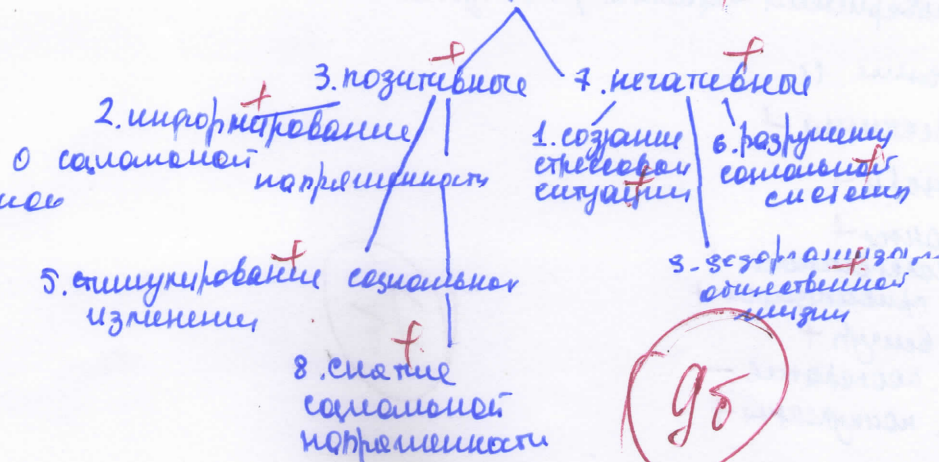 3. позитивные
7. негативные
2. информирование
о социальной
напряженности
1. создание
стрессовой
ситуации
6. разрушение
социальной
системы
5. стимулирование социальных
изменений
общественной
жизни
8. снятие
социальной
напряженности
9б